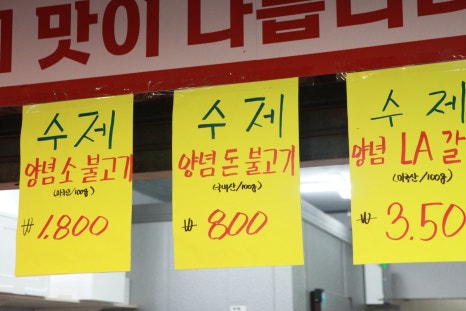 맛이 나옵니다
수제
양념 소 불고기
(미국산/100g)
₩1.800
수제
양념 돈 불고기
(국내산/100g)
₩800
수제
양념 LA 갈
(미국산/100g)
₩3.50